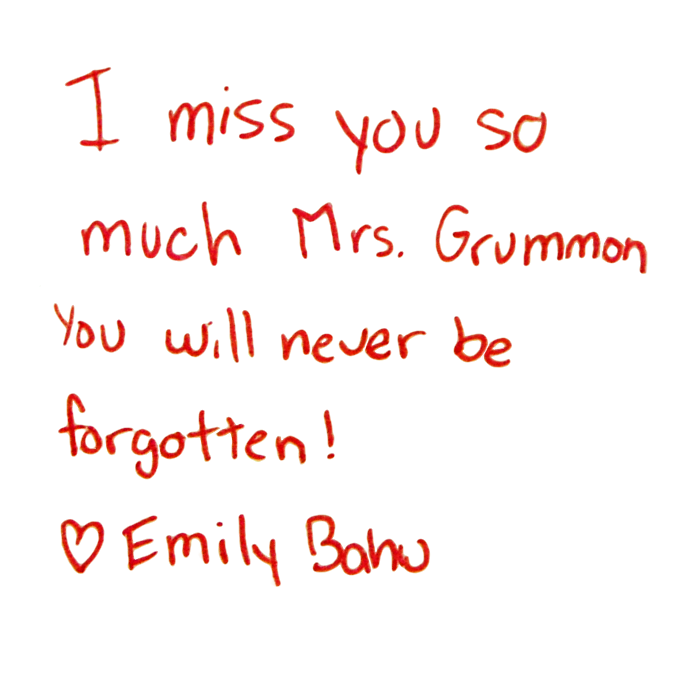 I miss you so
much Mrs. Grummon
You will never be
forgotten!
♡ Emily Bahu